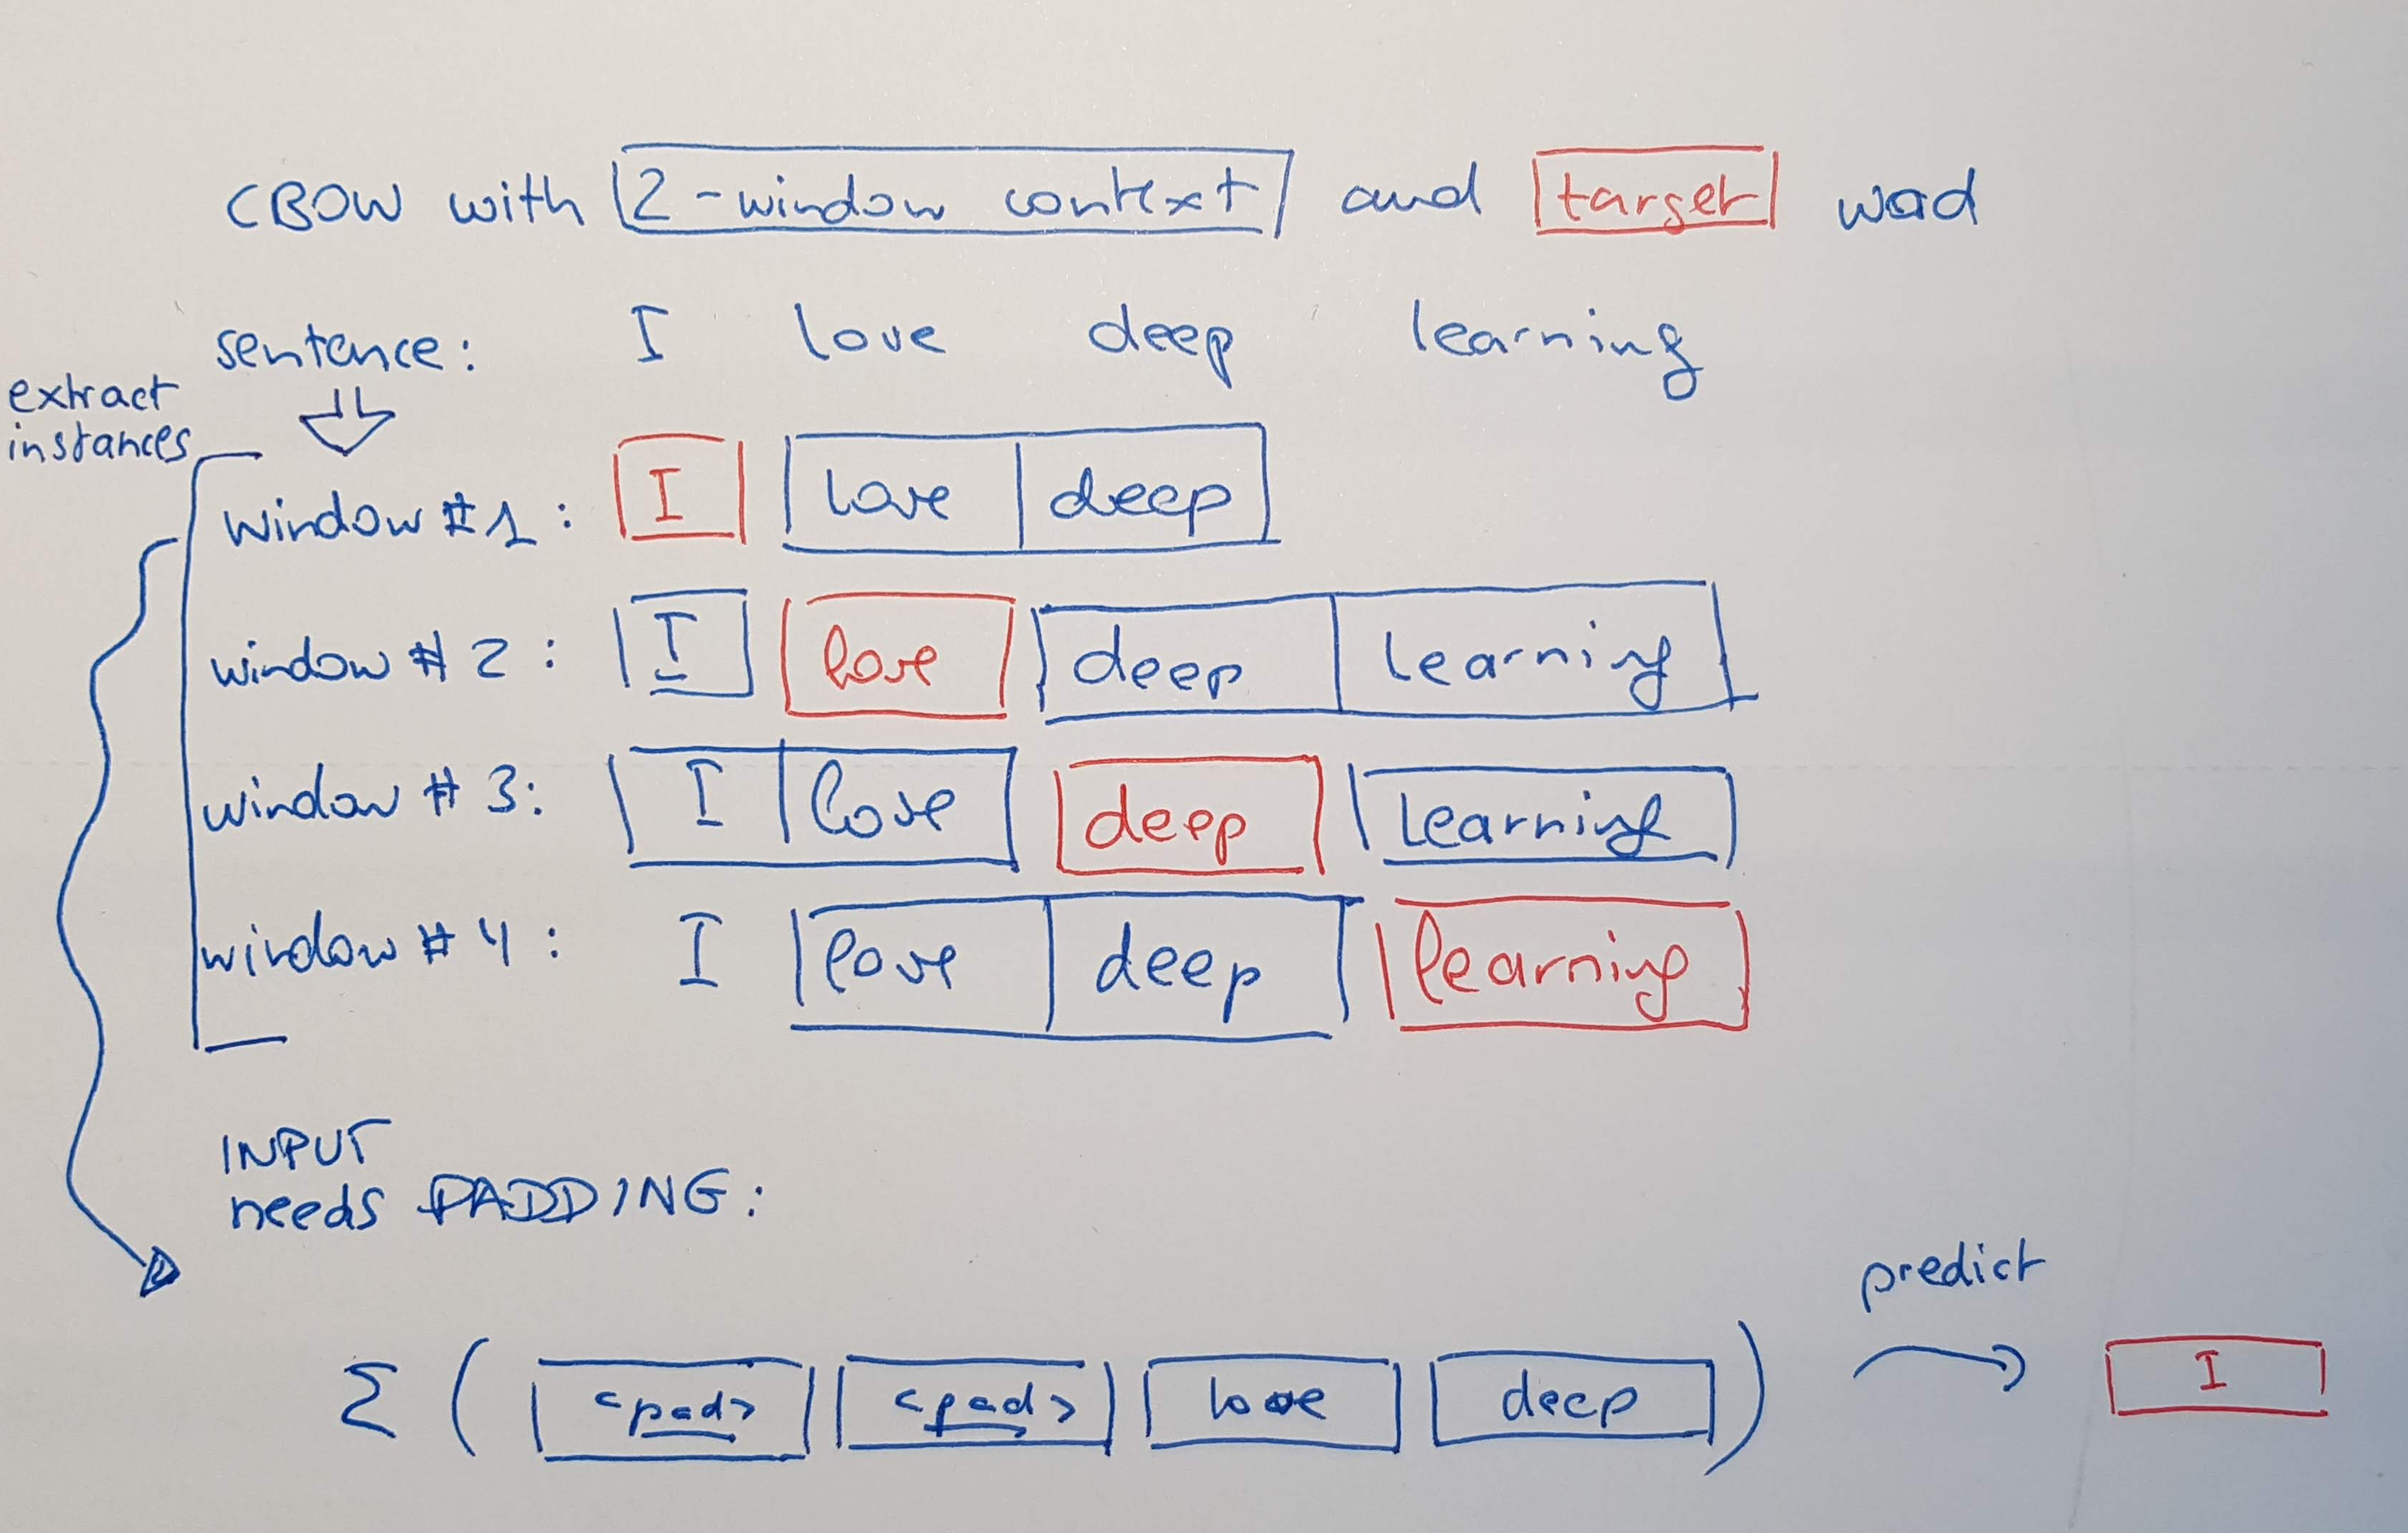 CBOW with 2-window context and target word
sentence: I love deep learning
extract
instances
window #1: I love deep
window #2: I love deep learning
window #3: I love deep learning
window #4: I love deep learning
INPUT
needs PADDING:
predict
Σ ( <pad> <pad> love deep ) I